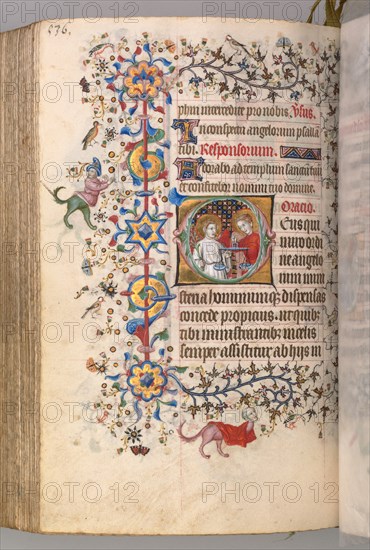 536.
phin intercedite pro nobis. Vſus.
In conspectu angelorum psallā
tibi. Responsorum.
Adorabo ad templum sanctū tuū
et confitebor nomini tuo domine.
Oracio.
Deus qui
miro ordi
ne angelo
rum mini
steria hominumq; dispensas
concede propicius. ut quib;
tibi ministrantib; in celis
semper assistitur ab hijs in
PHOTO 12